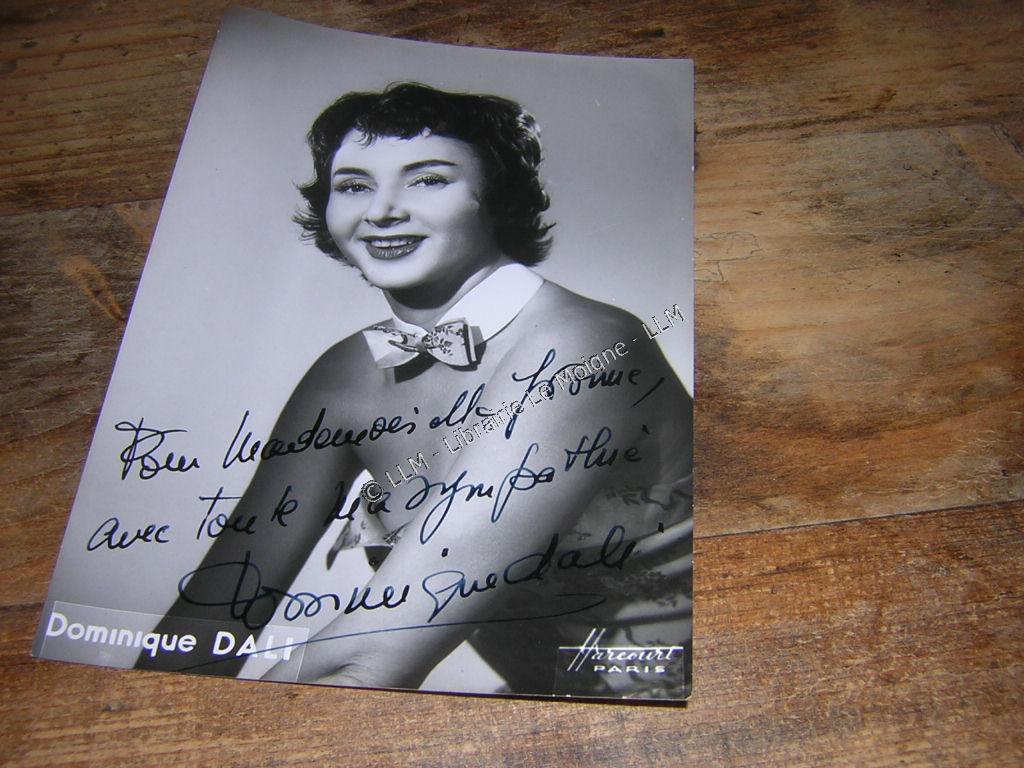 Pour Mademoiselle
avec toute ma sympathie
Dominique Dali
© LLM - Librairie Le Moigne - LLM
Dominique DALI
Harcourt
PARIS